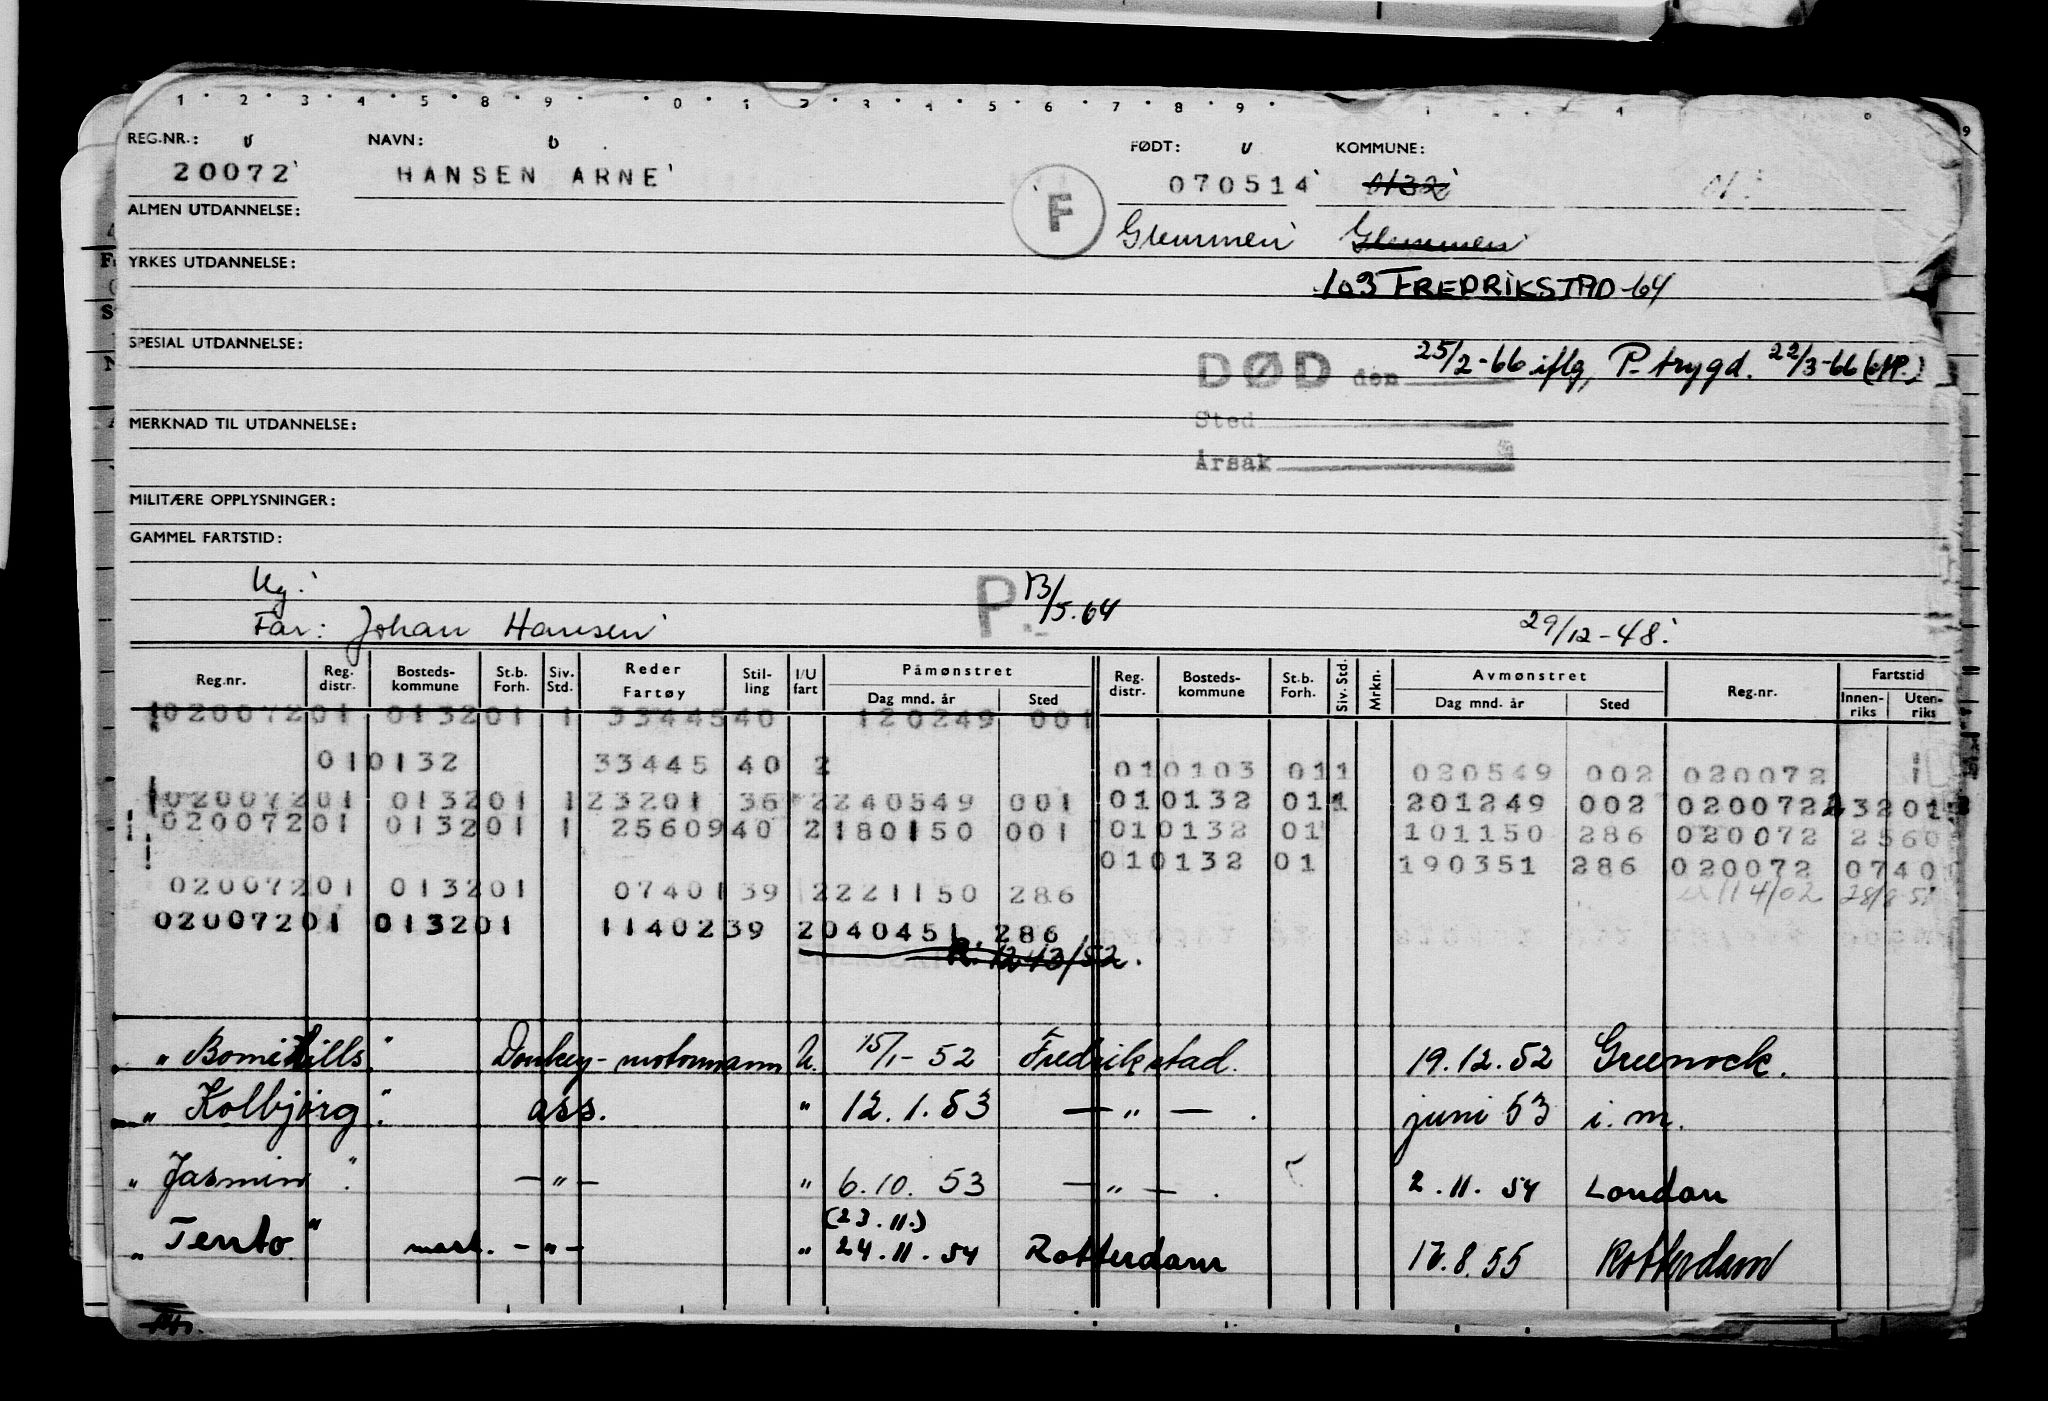 1 2 3 4 5 8 9 0 1 2 3 4 5 6 7 8 9 1 4
REG.NR.: NAVN: FØDT: KOMMUNE:
20072 HANSEN ARNE 070514 0132
ALMEN UTDANNELSE: F Glemmen Glemmen
YRKES UTDANNELSE: 103 FREDRIKSTAD -64
SPESIAL UTDANNELSE: DØD den 25/2-66 iflg, P-trygd. 22/3-66
Sted
MERKNAD TIL UTDANNELSE:
Årsak
MILITÆRE OPPLYSNINGER:
GAMMEL FARTSTID:
Ug. P. 13/5.64
Far: Johan Hansen 29/12-48.
Reg.nr. Reg. distr. Bosteds-kommune St.b. Forh. Siv. Std. Reder Fartøy Stil-ling I/U fart Påmønstret Dag mnd. år Sted Reg. distr. Bosteds-kommune St.b. Forh. Siv. Std. Mrkn. Avmønstret Dag mnd. år Sted Reg.nr. Fartstid Innen-riks Uten-riks
02007201 013201 1 3344540 120249 001
010132 33445 40 2 010103 011 020549 002 020072
02007201 013201 123201 36 2240549 001 010132 011 201249 002 020072 23201
02007201 013201 1 2560940 2180150 001 010132 01 101150 286 020072 2560
010132 01 190351 286 020072 0740
02007201 013201 0740139 2221150 286 114/02 28/8-51
02007201 013201 1140239 2040451 286
"Bomi Hills" Donkey-motormann U. 15/1-52 Fredrikstad. 19.12.52 Greenock.
"Kolbjørg" ass. " 12.1.53 — " — . juni 53 i.m.
"Jasmin" — " — " 6.10.53 — " — . 2.11.54 London
(23.11.)
"Tento" mask. — " — " 24.11.54 Rotterdam 17.8.55 Rotterdam